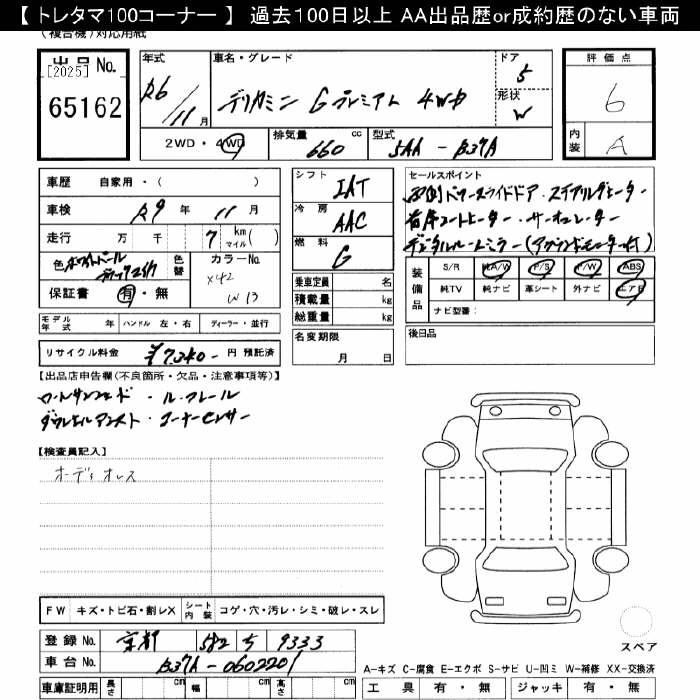 【 トレタマ100コーナー 】 過去100日以上 AA出品歴or成約歴のない車両
(複合機)対応用紙
出品No.
[2025]
65162
年式
R6/11月
車名・グレード
デリカミニ Gプレミアム 4WD
ドア
5
形状
W
評価点
6
内装
A
2WD・4WD
排気量
660 cc
型式
5AA-B37A
車歴 自家用・( )
車検 R9年 11月
走行 万 千 7 km マイル ( )
色 ホワイトパール
色替
カラーNo.
X42
W13
保証書 有・無
シフト
IAT
冷房
AAC
燃料
G
乗車定員 名
積載量 kg
総重量 kg
セールスポイント
デジタルルームミラー
装備品
S/R A/W P/S P/W ABS
純TV 純ナビ 革シート 外ナビ エアB
ナビ型番:
モデル年式 年 ハンドル 左・右 ディーラー・並行
リサイクル料金 ¥7,340- 円 預託済
名変期限
月 日
後日品
【出品店申告欄(不良箇所・欠品・注意事項等)】
ルーフレール
コーナーセンサー
【検査員記入】
オーディオレス
FW キズ・トビ石・割レX シート内装 コゲ・穴・汚レ・シミ・破レ・スレ
登録No. 京都 582 ち 9333
車台No. B37A-0602201
車庫証明用 長さ cm 幅 cm 高さ cm
スペア
A-キズ C-腐食 E-エクボ S-サビ U-凹ミ W-補修 XX-交換済
工具 有・無 ジャッキ 有・無